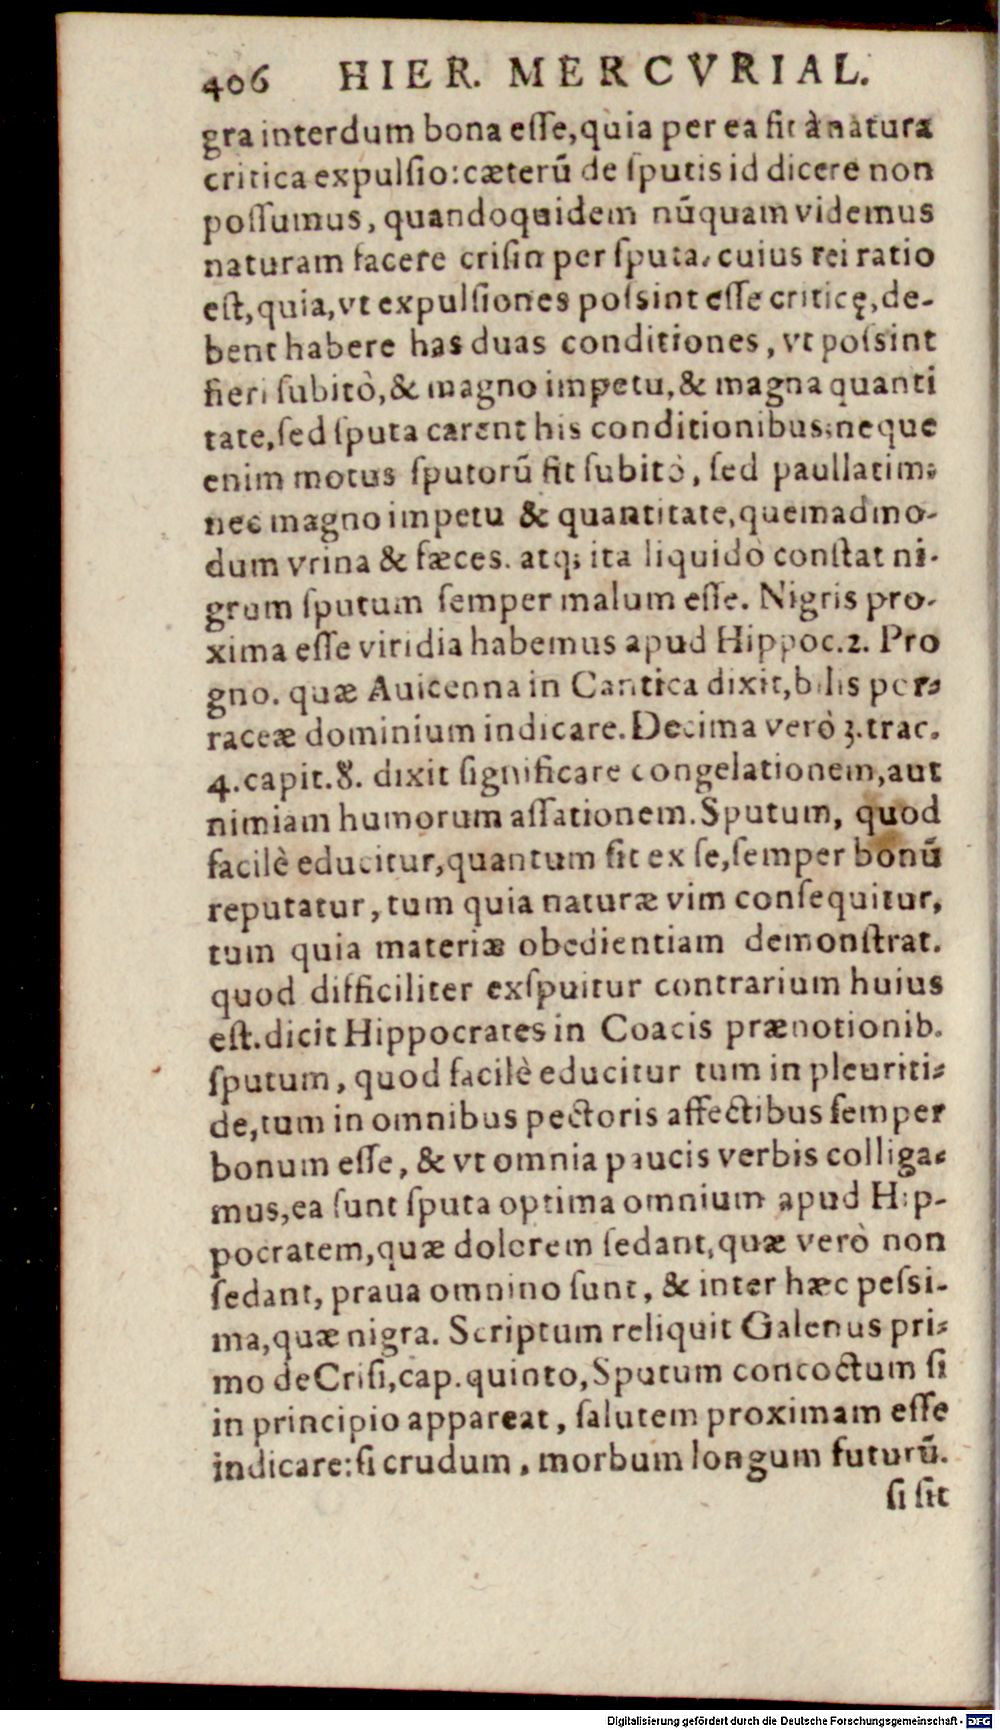 406 HIER. MERCVRIAL.
gra interdum bona eſſe, quia per ea fit à natura
critica expulſio: cæterũ de ſputis id dicere non
poſſumus, quandoquidem nũquam videmus
naturam facere criſin per ſputa, cuius rei ratio
eſt, quia, vt expulſiones poſsint eſſe criticę, de-
bent habere has duas conditiones, vt poſsint
fieri ſubitò, & magno impetu, & magna quanti
tate, ſed ſputa carent his conditionibus; neque
enim motus ſputorũ fit ſubitò, ſed paullatim:
nec magno impetu & quantitate, quemadmo-
dum vrina & fæces. atq; ita liquidò conſtat ni-
grum ſputum ſemper malum eſſe. Nigris pro-
xima eſſe viridia habemus apud Hippoc. 2. Pro
gno. quæ Auicenna in Cantica dixit, bilis per-
raceæ dominium indicare. Decima verò 3. trac.
4. capit. 8. dixit ſignificare congelationem, aut
nimiam humorum aſſationem. Sputum, quod
facilè educitur, quantum fit ex ſe, ſemper bonũ
reputatur, tum quia naturæ vim conſequitur,
tum quia materiæ obedientiam demonſtrat.
quod difficiliter exſpuitur contrarium huius
eſt. dicit Hippocrates in Coacis prænotionib.
ſputum, quod facilè educitur tum in pleuriti-
de, tum in omnibus pectoris affectibus ſemper
bonum eſſe, & vt omnia paucis verbis colliga-
mus, ea ſunt ſputa optima omnium apud Hip-
pocratem, quæ dolorem ſedant, quæ verò non
ſedant, praua omnino ſunt, & inter hæc peſsi-
ma, quæ nigra. Scriptum reliquit Galenus pri-
mo de Criſi, cap. quinto, Sputum concoctum ſi
in principio appareat, ſalutem proximam eſſe
indicare: ſi crudum, morbum longum futurũ.
ſi ſit
Digitalisierung gefördert durch die Deutsche Forschungsgemeinschaft - DFG